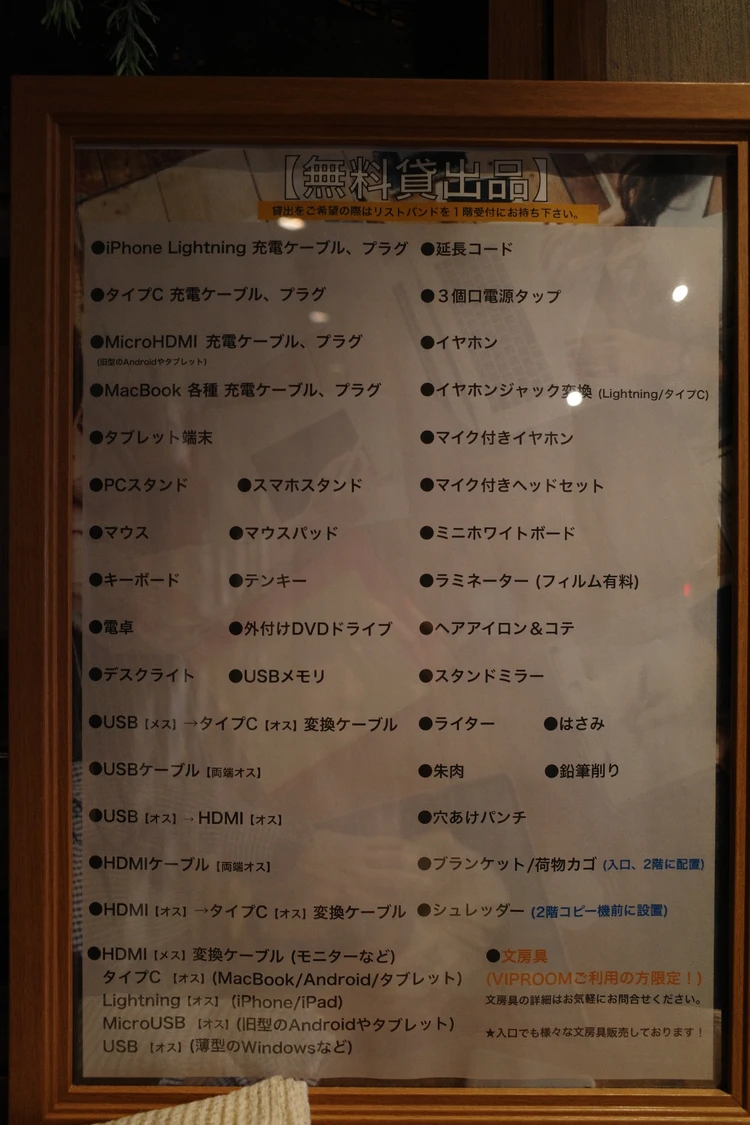 【無料貸出品】
貸出をご希望の際はリストバンドを1階受付にお持ち下さい。
●iPhone Lightning 充電ケーブル、プラグ ●延長コード
●タイプC 充電ケーブル、プラグ ●3個口電源タップ
●MicroHDMI 充電ケーブル、プラグ ●イヤホン
(旧型のAndroidやタブレット)
●MacBook 各種 充電ケーブル、プラグ ●イヤホンジャック変換 (Lightning/タイプC)
●タブレット端末 ●マイク付きイヤホン
●PCスタンド ●スマホスタンド ●マイク付きヘッドセット
●マウス ●マウスパッド ●ミニホワイトボード
●キーボード ●テンキー ●ラミネーター (フィルム有料)
●電卓 ●外付けDVDドライブ ●ヘアアイロン&コテ
●デスクライト ●USBメモリ ●スタンドミラー
●USB【メス】→タイプC【オス】変換ケーブル ●ライター ●はさみ
●USBケーブル【両端オス】 ●朱肉 ●鉛筆削り
●USB【オス】→HDMI【オス】 ●穴あけパンチ
●HDMIケーブル【両端オス】 ●ブランケット/荷物カゴ (入口、2階に配置)
●HDMI【オス】→タイプC【オス】変換ケーブル ●シュレッダー (2階コピー機前に設置)
●HDMI【メス】変換ケーブル (モニターなど) ●文房具
タイプC【オス】(MacBook/Android/タブレット) (VIPROOMご利用の方限定!)
Lightning【オス】(iPhone/iPad) 文房具の詳細はお気軽にお問合せください。
MicroUSB【オス】(旧型のAndroidやタブレット) ★入口でも様々な文房具販売しております!
USB【オス】(薄型のWindowsなど)